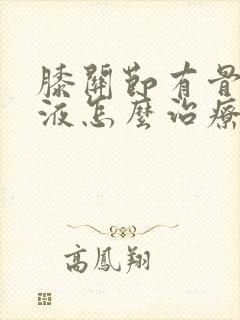 膝關節有骨
液怎麼治療
高鳳翔